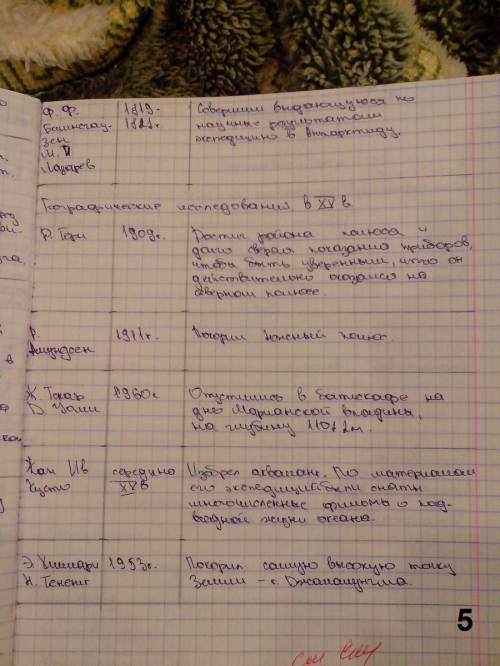 Ф. Ф. 1819- Совершили выдающуюся по
Беллинсгау- 1821г. научные результатам
зен экспедицию в Антарктиду.
М. П
Лазарев
Географические исследования в XV в.
Р. Пири 1909г. Достиг района полюса и
показания приборов,
чтобы быть уверенным, что он
действительно оказался на
северном полюсе.
Р. 1911г. Покорил Южный полюс.
Амундсен
Ж. Пикар 1960г. Опустились в батискафе на
Д. Уолш дно Марианской впадины,
на глубину 11022м.
Жак Ив середина Изобрел акваланг. По материалам
Кусто XV в его экспедиций были сняты
многочисленные фильмы о под-
водной жизни океана.
Э. Хиллари 1953г. Покорил самую высокую точку
Н. Тенсинг Земли - г. Джомолунгма.
5